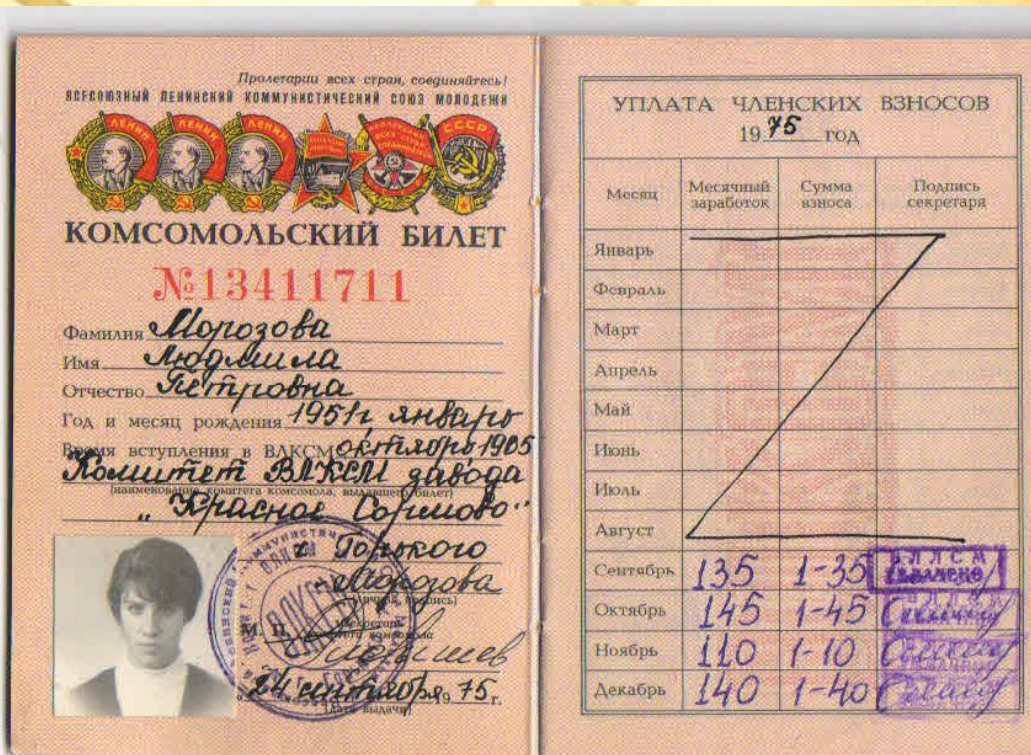 Пролетарии всех стран, соединяйтесь!
ВСЕСОЮЗНЫЙ ЛЕНИНСКИЙ КОММУНИСТИЧЕСКИЙ СОЮЗ МОЛОДЕЖИ
ЛЕНИН ЛЕНИН ЛЕНИН СССР
КОМСОМОЛЬСКИЙ БИЛЕТ
№13411711
Фамилия Морозова
Имя Людмила
Отчество Петровна
Год и месяц рождения 1951г январь
Время вступления в ВЛКСМ октябрь 1965
Комитет ВЛКСМ завода
(наименование комитета комсомола, выдавшего билет)
„Красное Сормово"
г. Горького
Морозова
(личная подпись)
М. П. Секретарь
комитета комсомола
24 сентября 1975 г.
(дата выдачи)
ВЛКСМ
УПЛАТА ЧЛЕНСКИХ ВЗНОСОВ
1975 год
Месяц Месячный заработок Сумма взноса Подпись секретаря
Январь
Февраль
Март
Апрель
Май
Июнь
Июль
Август
Сентябрь 135 1-35
Октябрь 145 1-45
Ноябрь 110 1-10
Декабрь 140 1-40